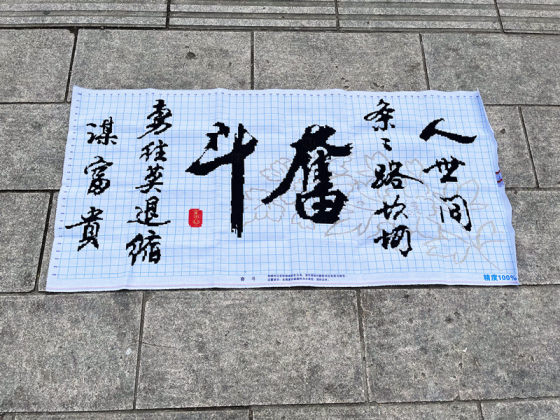 人世间
条々路坎坷
奮斗
勇往莫退缩
谋富貴
精度100%